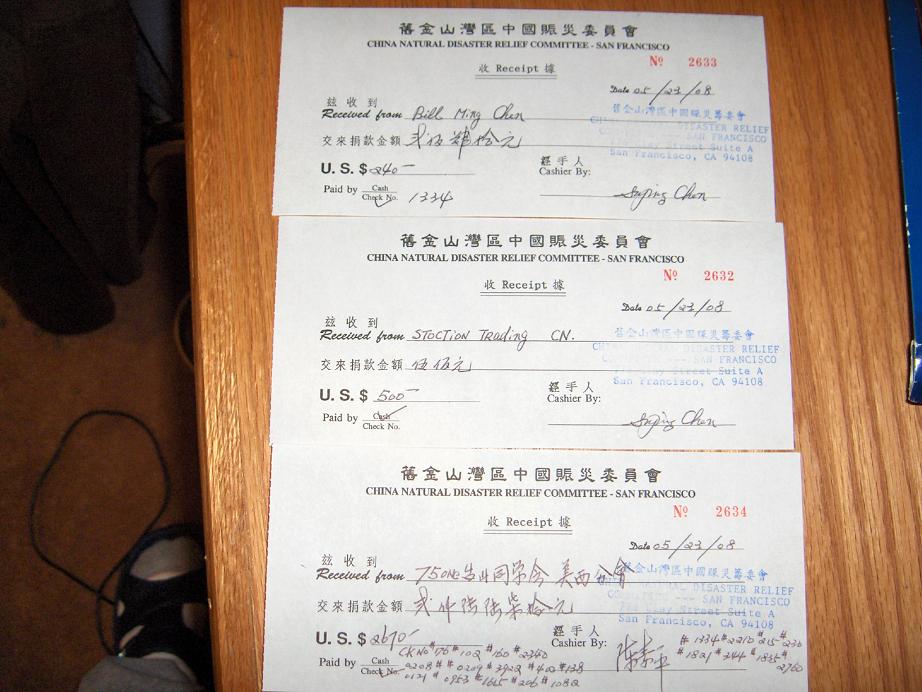 舊金山灣區中國賑災委員會
CHINA NATURAL DISASTER RELIEF COMMITTEE - SAN FRANCISCO
Nº 2633
收 Receipt 據
Date 05/23/08
茲收到
Received from Bill Ming Chen
交來捐款金額 貳佰肆拾元
舊金山灣區中國賑災籌委會
DISASTER RELIEF
SAN FRANCISCO
Clay Street Suite A
San Francisco, CA 94108
U.S. $ 240-
經手人
Cashier By: Suping Chen
Paid by Cash
Check No. 1334
舊金山灣區中國賑災委員會
CHINA NATURAL DISASTER RELIEF COMMITTEE - SAN FRANCISCO
Nº 2632
收 Receipt 據
Date 05/23/08
茲收到
Received from STOCTION TRADING CN.
交來捐款金額 伍佰元
舊金山灣區中國賑災籌委會
DISASTER RELIEF
SAN FRANCISCO
Street Suite A
San Francisco, CA 94108
U.S. $ 500-
經手人
Cashier By: Suping Chen
Paid by Cash
Check No.
舊金山灣區中國賑災委員會
CHINA NATURAL DISASTER RELIEF COMMITTEE - SAN FRANCISCO
Nº 2634
收 Receipt 據
Date 05/23/08
茲收到
Received from 同學會 美西分會
交來捐款金額 貳仟陸陸柒拾元
金山灣區中國賑災籌委會
DISASTER RELIEF
SAN FRANCISCO
Street Suite A
San Francisco, CA 94108
U.S. $ 2670-
經手人
Cashier By:
#1334 #2210 #215 #236
#1821 #244 #1835 #2760
CK NO #76 #102 #160 #2340
Paid by Cash
Check No.
0208 #0209 #3922 #402 #138
0121 #0953 #1615 #206 #1082